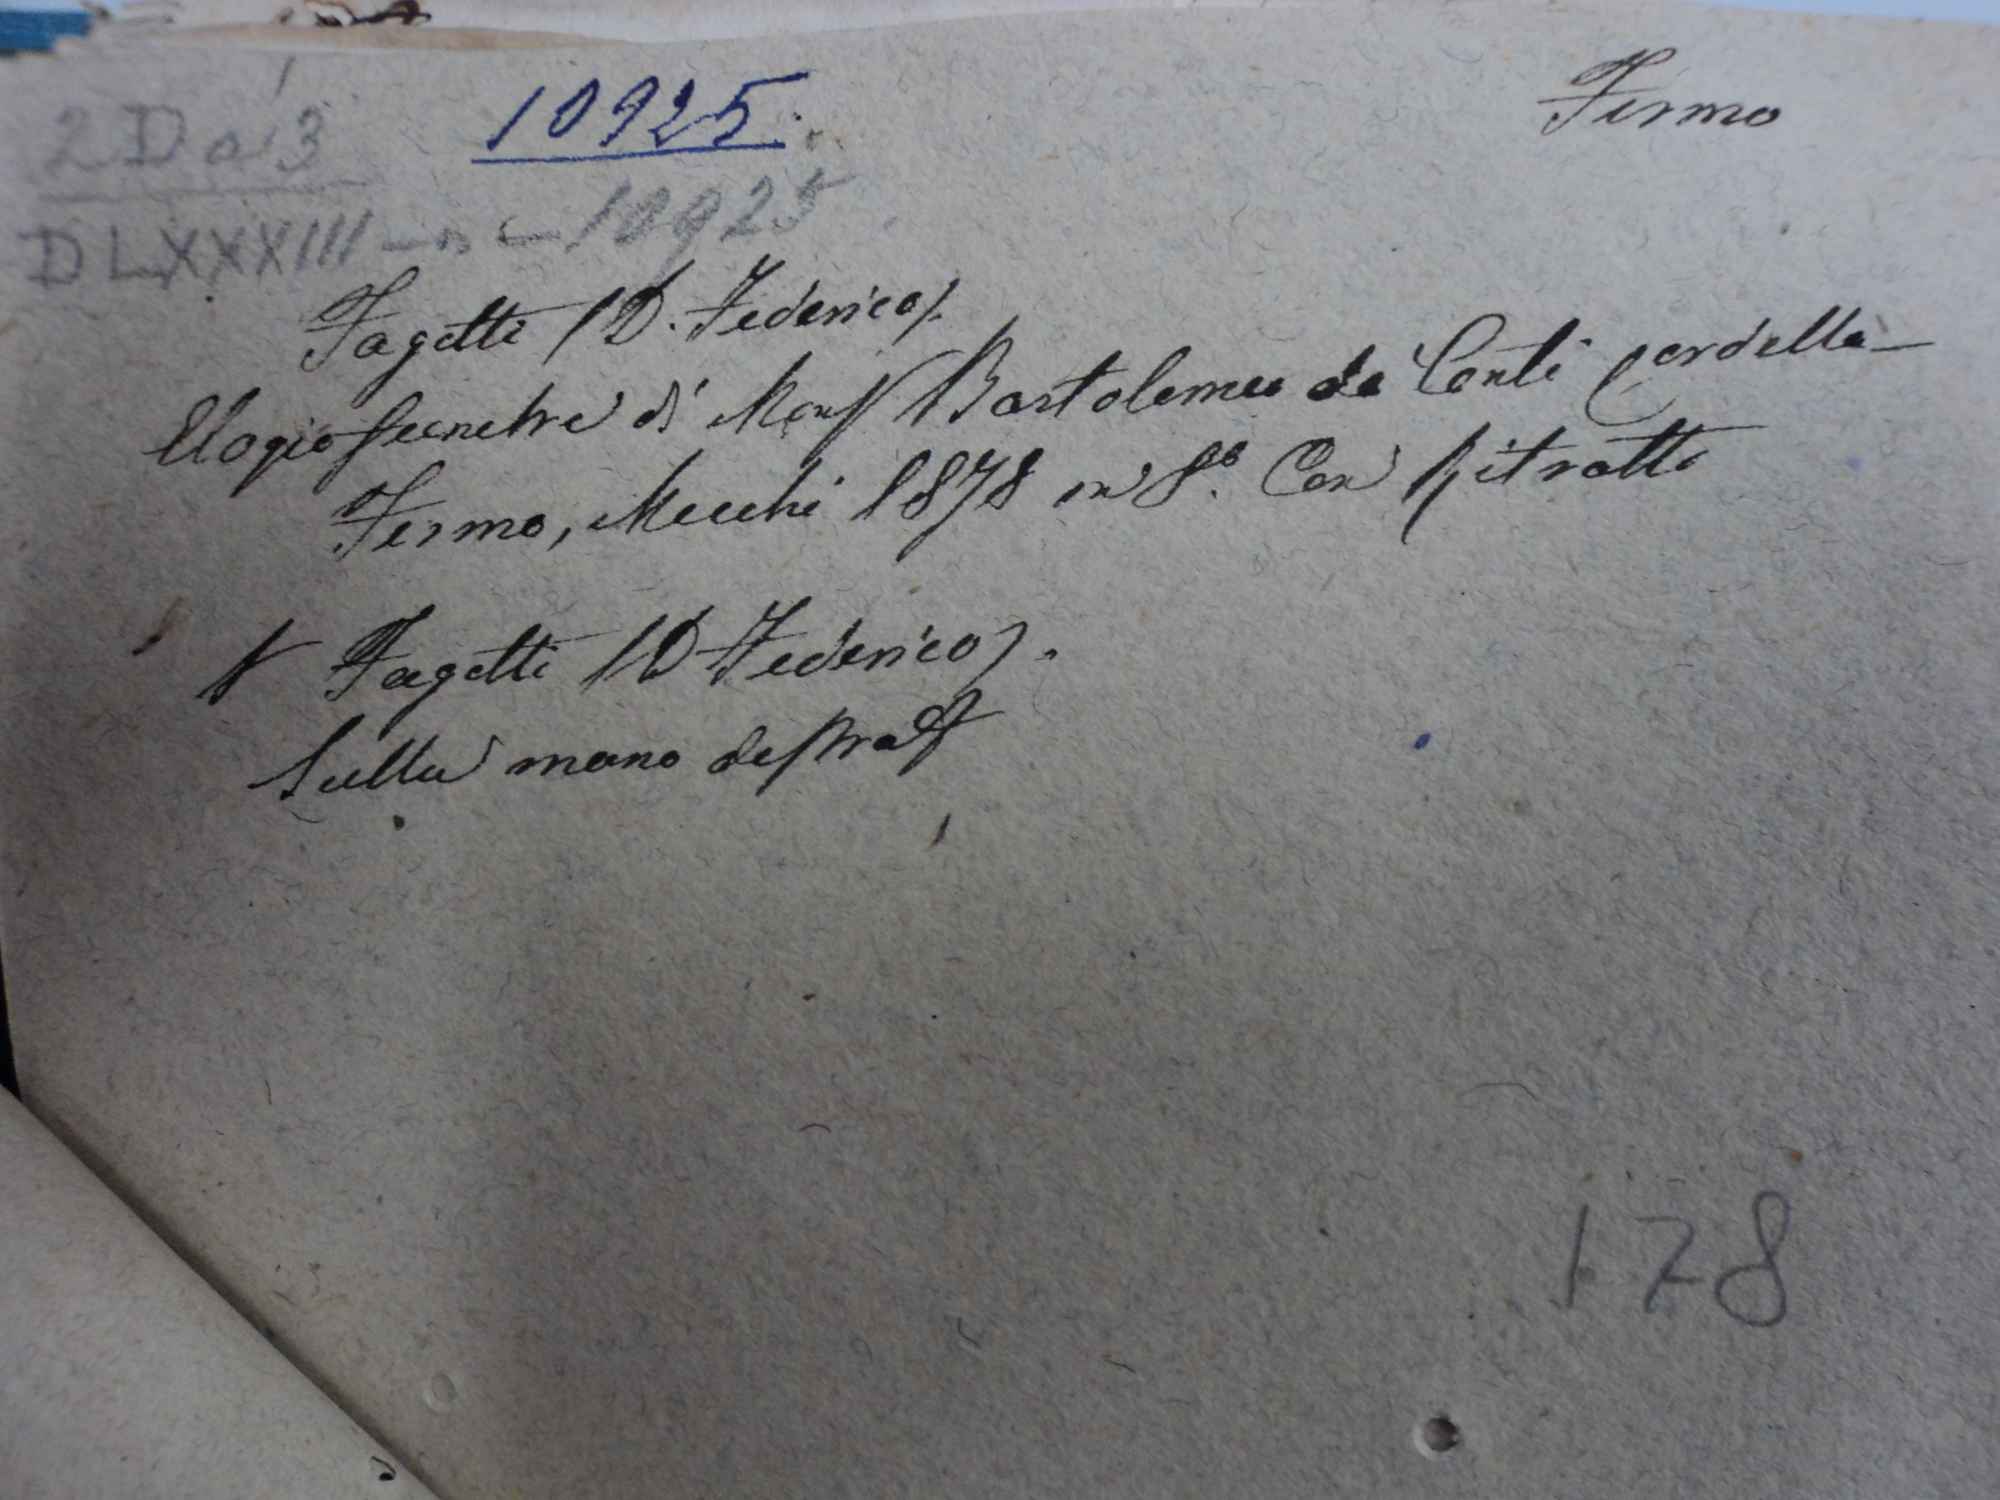 2 D a 3
10925
Fermo
DLXXXIII - n° - 10925
Fagetti (D. Federico).
Elogio funebre di Mons Bartolomeo de Conti Cordella
Fermo, Mecchi 1878 in 8.° Con Ritratto
Fagetti (D Federico).
Sulla mano destra
178